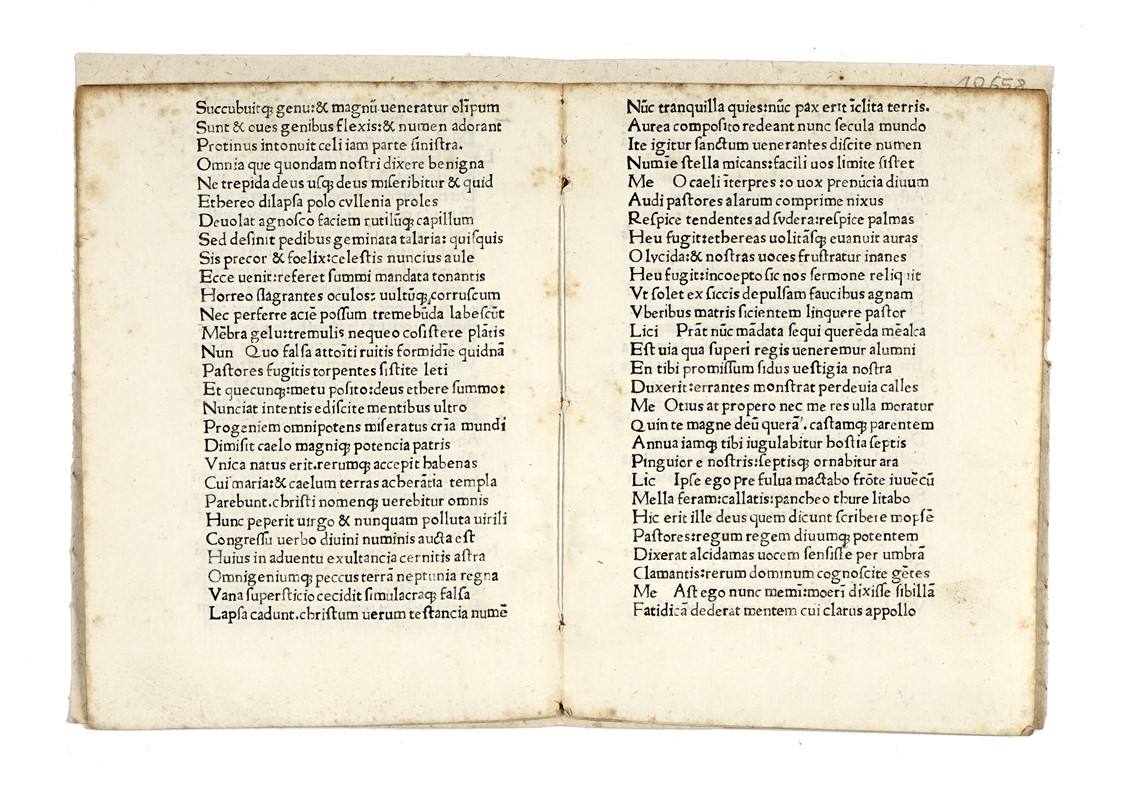 19658
Succubuitqꝫ genu:& magnū ueneratur olīpum
Sunt & oues genibus flexis:& numen adorant
Protinus intonuit celi iam parte ſiniſtra.
Omnia que quondam noſtri dixere benigna
Ne trepida deus uſqꝫ deus miſeribitur & quid
Ethereo dilapſa polo cyllenia proles
Deuolat agnoſco faciem rutilūqꝫ capillum
Sed deſinit pedibus geminata talaria: quiſquis
Sis precor & foelix:celeſtis nuncius aule
Ecce uenit:referet ſummi mandata tonantis
Horreo flagrantes oculos: uultūqꝫ corruſcum
Nec perferre aciē poſſum tremebūda labeſcūt
Mēbra gelu:tremulis nequeo coſiſtere plātis
Nun Quo falſa attoīti ruitis formidīe quidnā
Paſtores fugitis torpentes ſiſtite leti
Et quecunqꝫ:metu poſito:deus ethere ſummo:
Nunciat intentis ediſcite mentibus ultro
Progeniem omnipotens miſeratus crīa mundi
Dimiſit caelo magniqꝫ potencia patris
Vnica natus erit.rerumqꝫ accepit habenas
Cui maria:& caelum terras acherātia templa
Parebunt.chriſti nomenqꝫ uerebitur omnis
Hunc peperit uirgo & nunquam polluta uirili
Congreſſu uerbo diuini numinis aucta eſt
Huius in aduentu exultancia cernitis aſtra
Omnigeniumqꝫ peccus terrā neptunia regna
Vana ſuperſticio cecidit ſimulacraqꝫ falſa
Lapſa cadunt.chriſtum uerum teſtancia numē
Nūc tranquilla quies:nūc pax erit īclita terris.
Aurea compoſito redeant nunc ſecula mundo
Ite igitur ſanctum uenerantes diſcite numen
Numīe ſtella micans:facili uos limite ſiſtet
Me O caeli īterpres :o uox prenūcia diuum
Audi paſtores alarum comprime nixus
Reſpice tendentes ad ſydera:reſpice palmas
Heu fugit:ethereas uolitāſqꝫ euanuit auras
O lycida:& noſtras uoces fruſtratur inanes
Heu fugit:incoepto ſic nos ſermone reliquit
Vt ſolet ex ſiccis depulſam faucibus agnam
Vberibus matris ſicientem linquere paſtor
Lici Prāt nūc mādata ſequi querēda mēalca
Eſt uia qua ſuperi regis ueneremur alumni
En tibi promiſſum ſidus ueſtigia noſtra
Duxerit:errantes monſtrat perdeuia calles
Me Otius at propero nec me res ulla moratur
Quin te magne deū querā'. caſtamqꝫ parentem
Annua iamqꝫ tibi iugulabitur hoſtia ſeptis
Pinguior e noſtris:ſeptisqꝫ ornabitur ara
Lic Ipſe ego pre fulua mactabo frōte iuuēcū
Mella feram:callatis:pancheo thure litabo
Hic erit ille deus quem dicunt ſcribere mopſē
Paſtores:regum regem diuumqꝫ potentem
Dixerat alcidamas uocem ſenſiſſe per umbrā
Clamantis:rerum dominum cognoſcite gētes
Me Aſt ego nunc memī:moerī dixiſſe ſibillā
Fatidicā dederat mentem cui clarus appollo